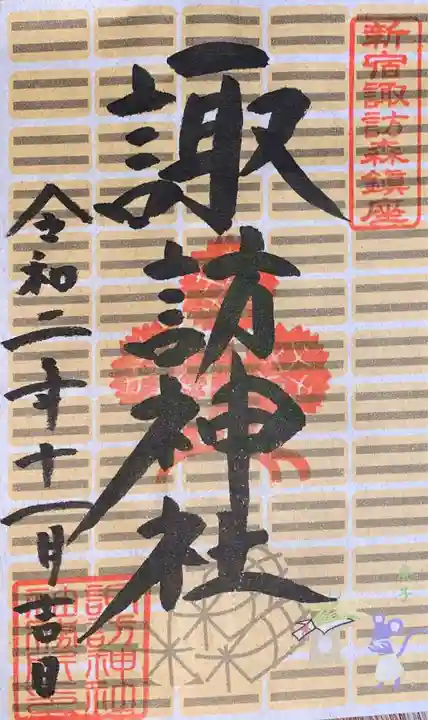 新宿諏訪森鎮座
諏訪神社
令和二年十一月吉日